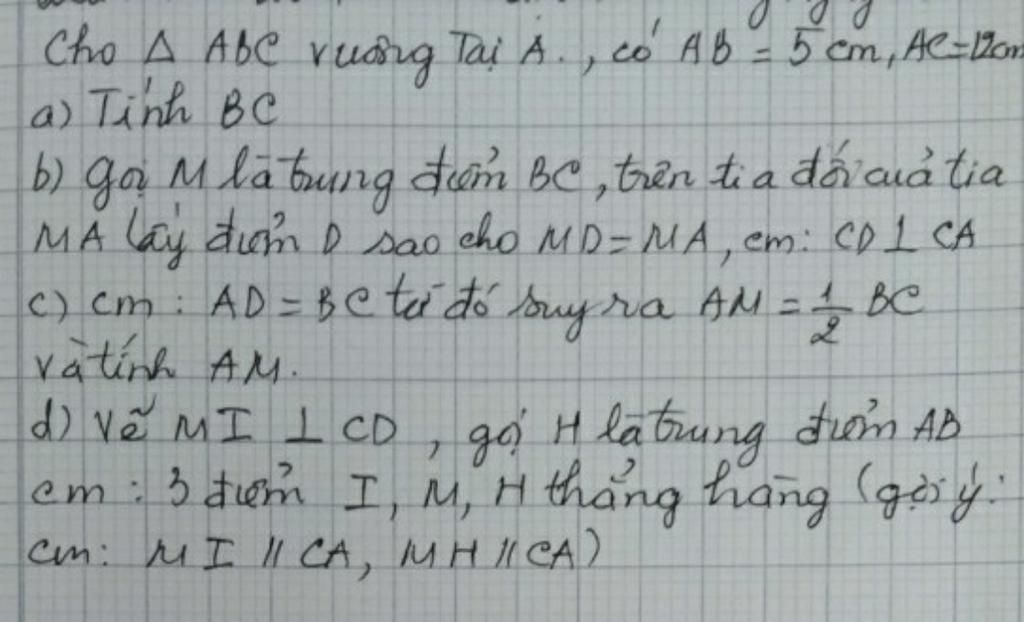 Cho Δ ABC vuông Tại A., có AB = 5 cm, AC = 12cm
a) Tính BC
b) gọi M là trung điểm BC, trên tia đối của tia
MA lấy điểm D sao cho MD = MA, cm: CD ⊥ CA
c) cm: AD = BC từ đó suy ra AM = 1/2 BC
và tính AM.
d) Vẽ MI ⊥ CD, gọi H là trung điểm AB
cm: 3 điểm I, M, H thẳng hàng (gợi ý:
cm: MI // CA, MH // CA)